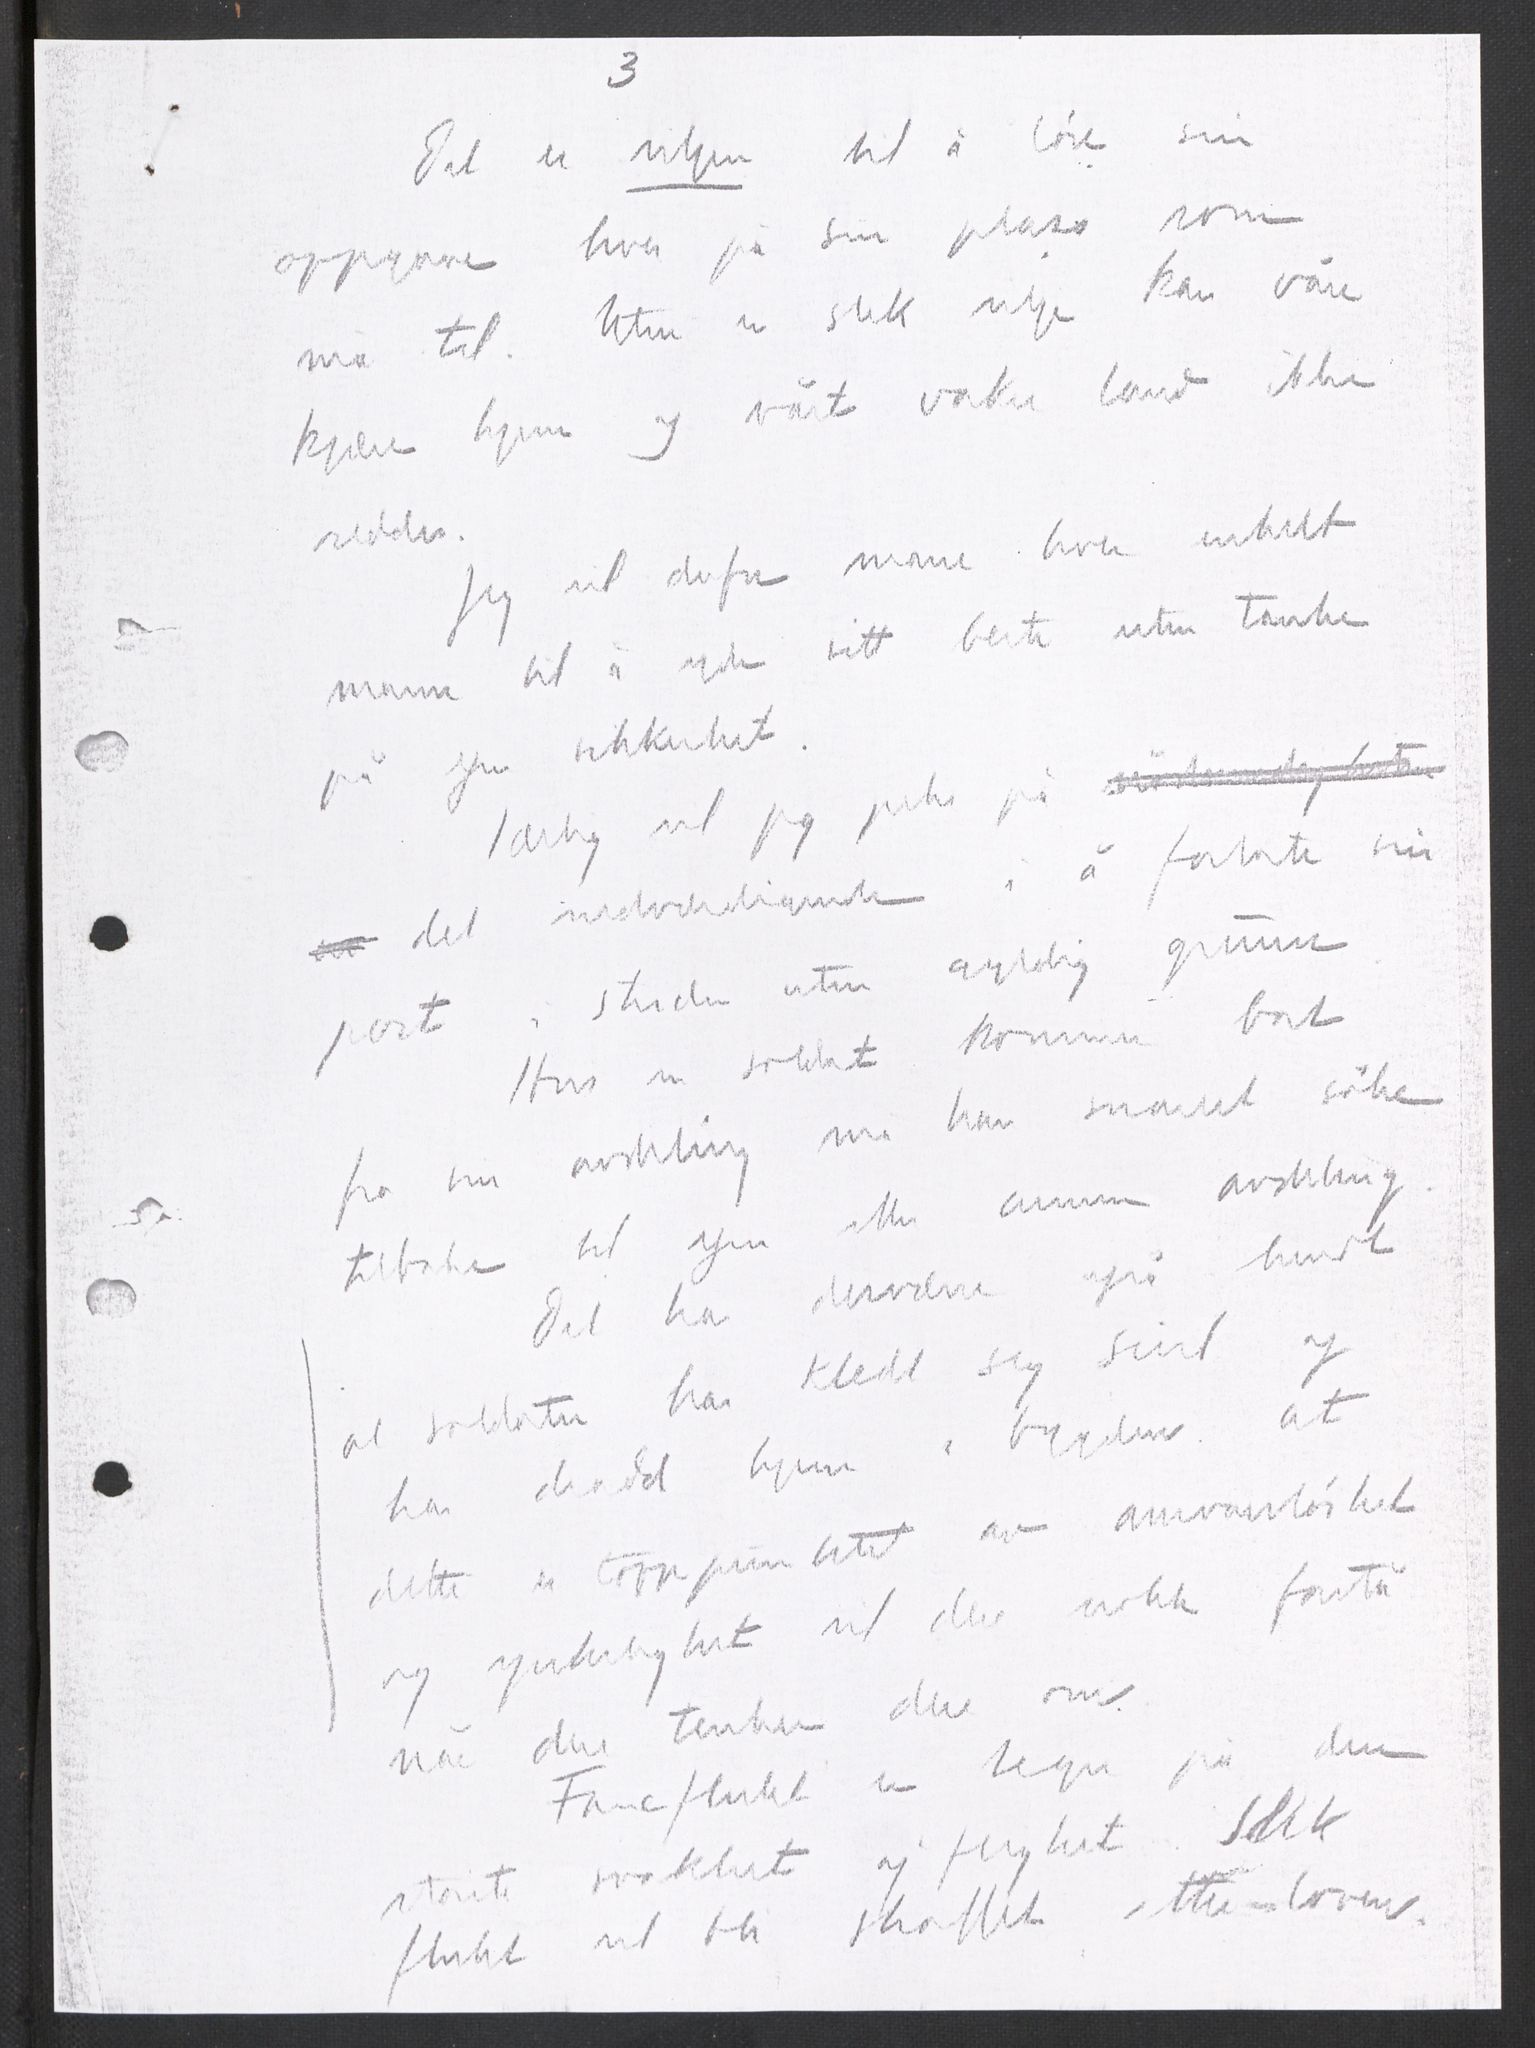 3
Det er viljen til å löse sin
oppgave hver på sin plass som
må til. Uten en slik vilje kan våre
kjære hjem og vårt vakre land ikke
reddes.
Jeg vil derfor mane hver enkelt
mann til å yde sitt beste uten tanke
på egen sikkerhet.
Særlig vil jeg peke på
det nedverdigende i å forlate sin
post i striden uten gyldig grunn.
Hvis en soldat kommer bort
fra sin avdeling må han snarest söke
tilbake til egen eller annen avdeling.
Det har dessverre også hendt
at soldater har kledt seg sivil og
har dradd hjem i bygdene. At
dette er toppunktet av ansvarslöshet
og ynkelighet vil dere nokk forstå
når dere tenker dere om.
Faneflukt er tegn på den
største svakhet og feighet. Slik
flukt vil bli straffet etter lovens.